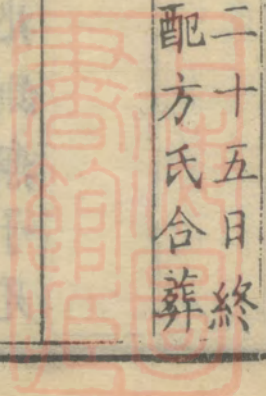 二十五日終
配方氏合葬